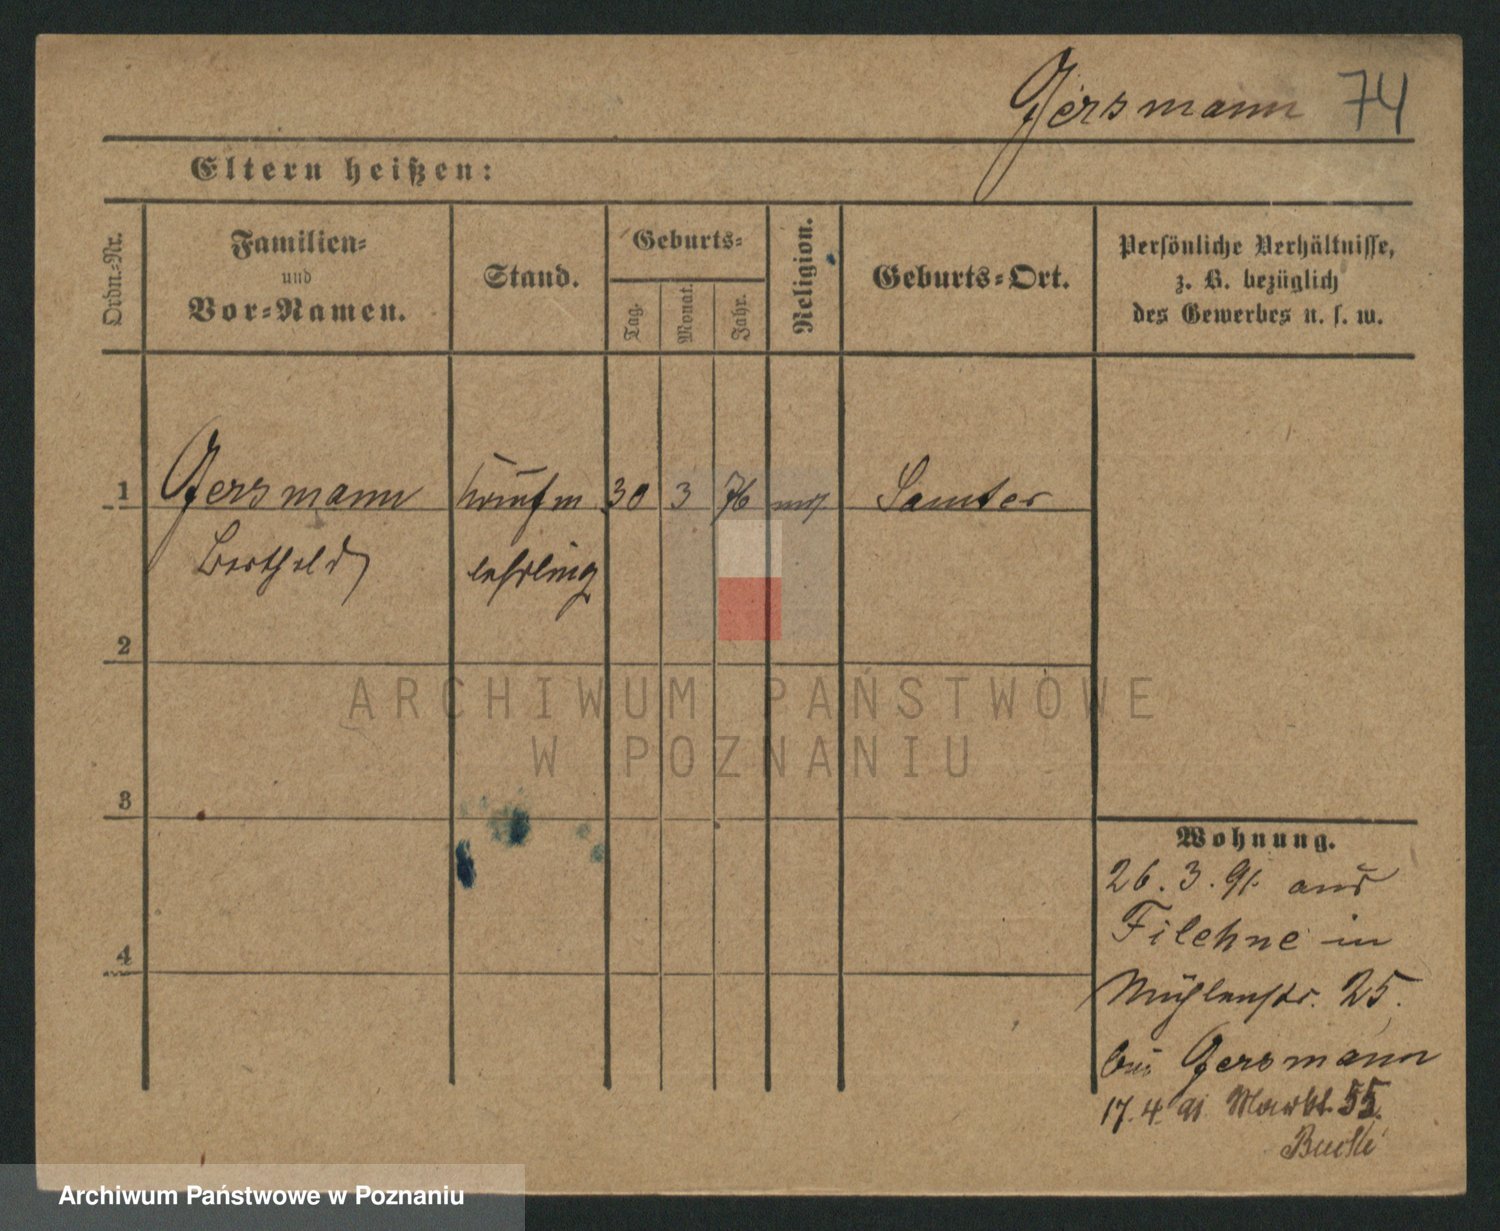 Gersmann 74
Eltern heißen:
Ordn.=Nr.
Familien=
und
Vor=Namen.
Stand.
Geburts=
Tag.
Monat.
Jahr.
Religion.
Geburts=Ort.
Persönliche Verhältnisse,
z. B. bezüglich
des Gewerbes u. s. w.
1 Gersmann Kaufm 30 3 76 mos Samter
Berthold lehrling
2
ARCHIWUM PAŃSTWOWE
W POZNANIU
3
Wohnung.
26. 3. 91. aus
Filehne in
4
Mühlenstr. 25.
bei Gersmann
17. 4. 91 Markt 55.
Archiwum Państwowe w Poznaniu